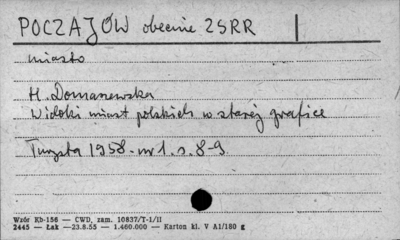 POCZAJÓW obecnie ZSRR
miasto
H. Domanewska
Widoki miast polskich w starej grafice
Turysta 1958. nr 1. s. 8-9
Wzór Kb-156 — CWD, zam. 10837/T-1/II
2445 — Łak —23.8.55 — 1.460.000 — Karton kl. V A1/180 g